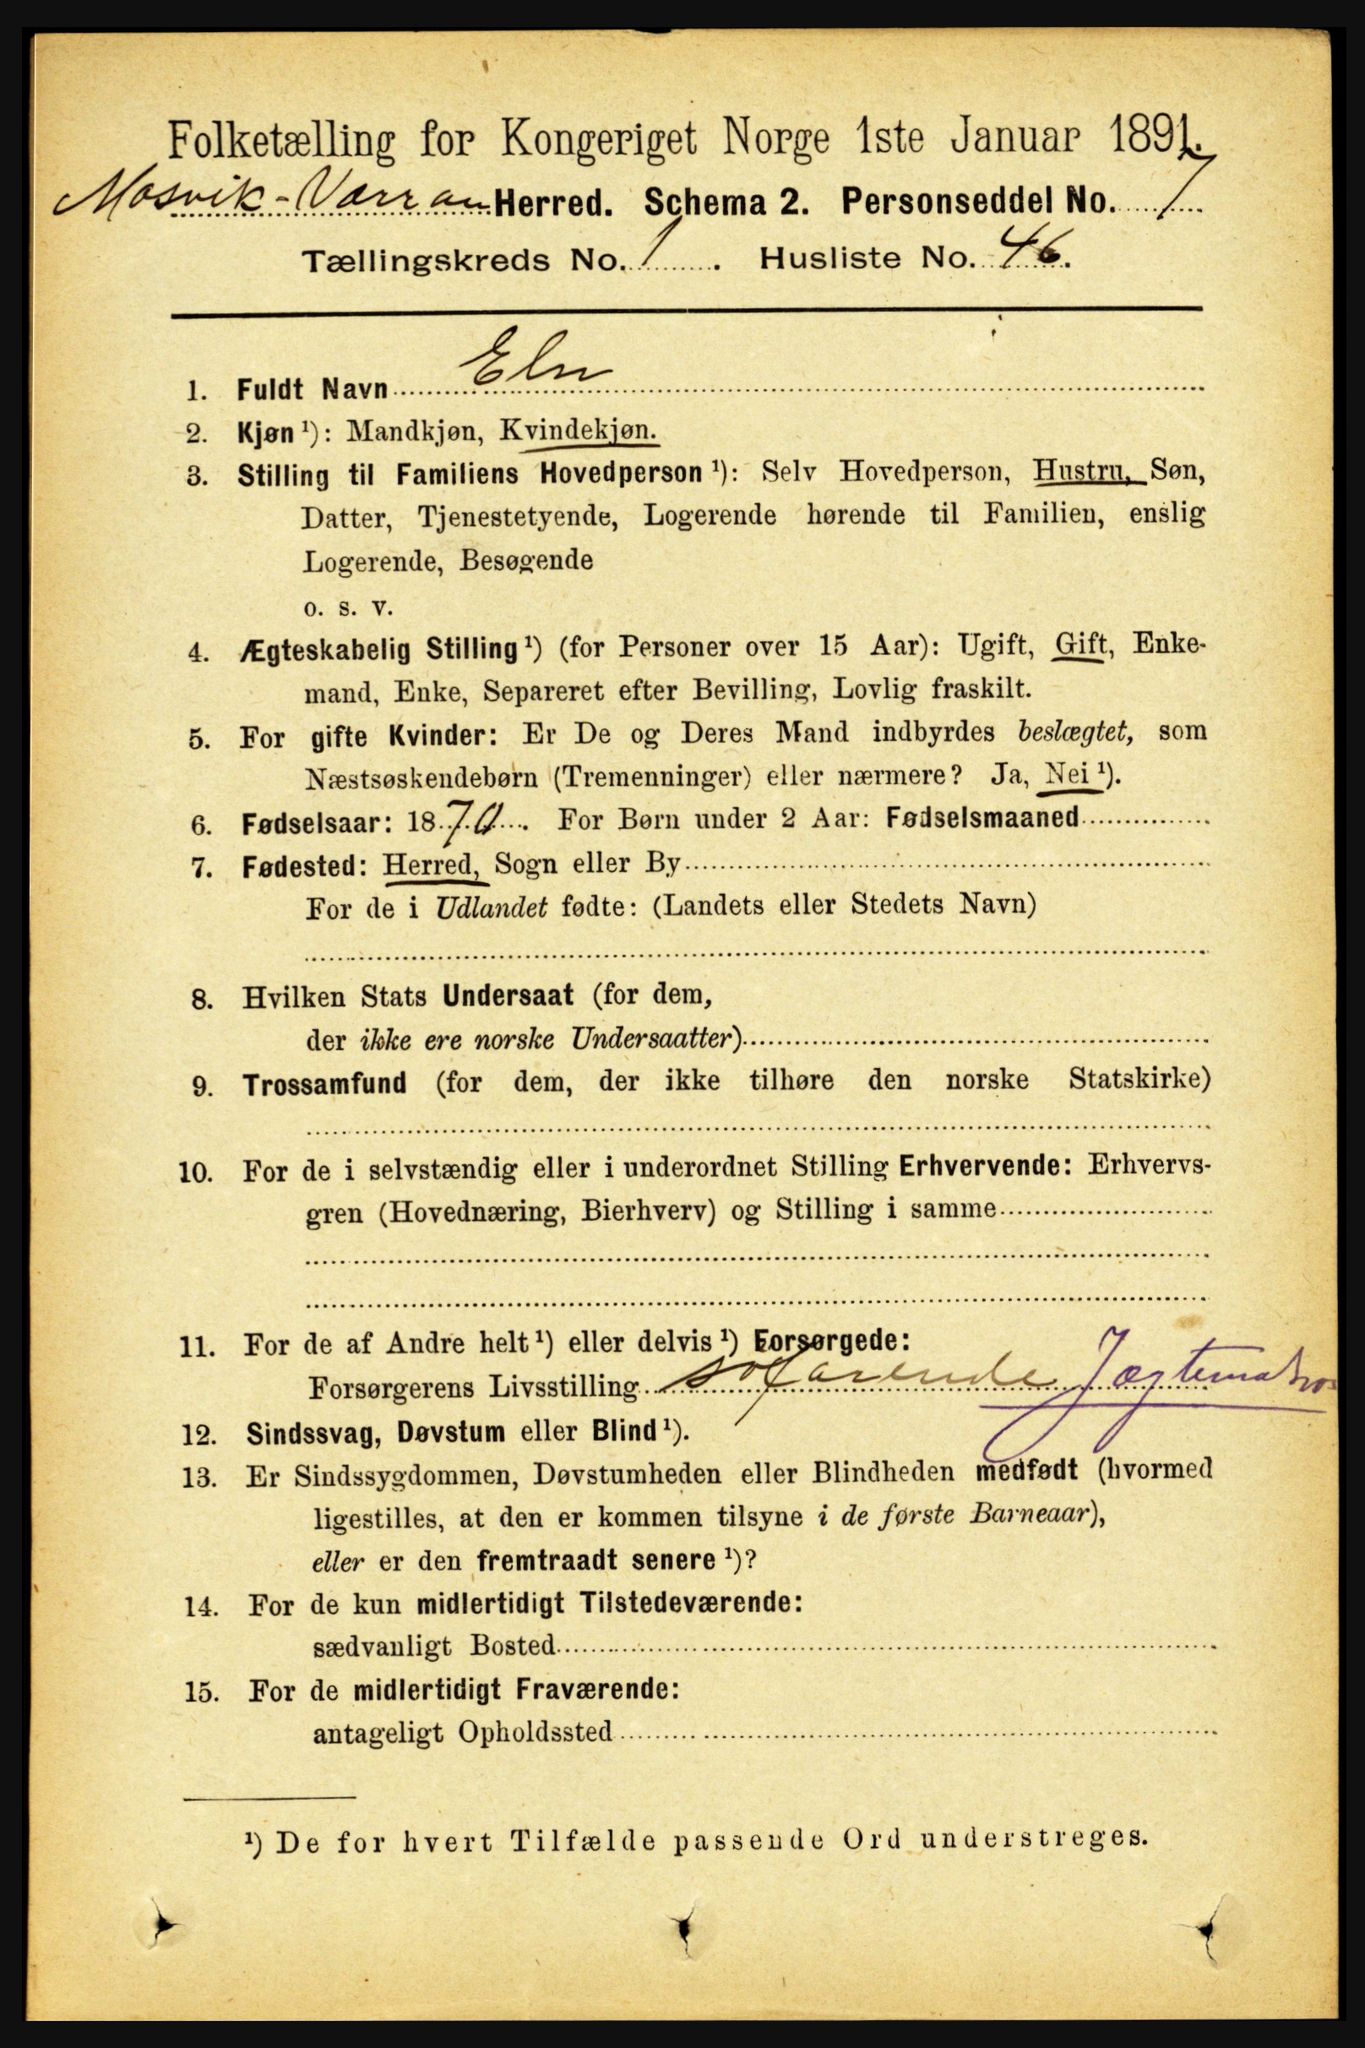 Folketælling for Kongeriget Norge 1ste Januar 1891.
Mosvik-Værran Herred. Schema 2. Personseddel No. 7
Tællingskreds No. 1. Husliste No. 46.
1. Fuldt Navn
2. Kjøn ¹): Mandkjøn, Kvindekjøn.
3. Stilling til Familiens Hovedperson ¹): Selv Hovedperson, Hustru, Søn,
Datter, Tjenestetyende, Logerende hørende til Familien, enslig
Logerende, Besøgende
o. s. v.
4. Ægteskabelig Stilling ¹) (for Personer over 15 Aar): Ugift, Gift, Enke-
mand, Enke, Separeret efter Bevilling, Lovlig fraskilt.
5. For gifte Kvinder: Er De og Deres Mand indbyrdes beslægtet, som
Næstsøskendebørn (Tremenninger) eller nærmere? Ja, Nei ¹).
6. Fødselsaar: 1870. For Børn under 2 Aar: Fødselsmaaned
7. Fødested: Herred, Sogn eller By
For de i Udlandet fødte: (Landets eller Stedets Navn)
8. Hvilken Stats Undersaat (for dem,
der ikke ere norske Undersaatter)
9. Trossamfund (for dem, der ikke tilhøre den norske Statskirke)
10. For de i selvstændig eller i underordnet Stilling Erhvervende: Erhvervs-
gren (Hovednæring, Bierhverv) og Stilling i samme
11. For de af Andre helt ¹) eller delvis ¹) Forsørgede:
Forsørgerens Livsstilling søfarende Jægtematros
12. Sindssvag, Døvstum eller Blind ¹).
13. Er Sindssygdommen, Døvstumheden eller Blindheden medfødt (hvormed
ligestilles, at den er kommen tilsyne i de første Barneaar),
eller er den fremtraadt senere ¹)?
14. For de kun midlertidigt Tilstedeværende:
sædvanligt Bosted
15. For de midlertidigt Fraværende:
antageligt Opholdssted
¹) De for hvert Tilfælde passende Ord understreges.